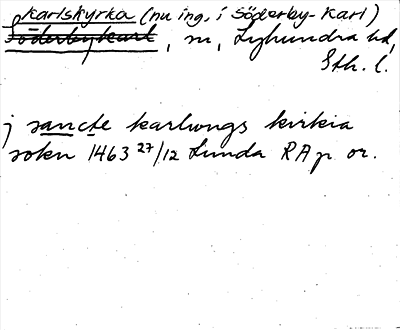 Karlskyrka (nu ing. i Söderby-Karl)
Söderbykarl, sn, Lyhundra hd,
Sth. l.
j sancte karlwngs kirkia
sokn 1463 27/12 Lunda RAp or.